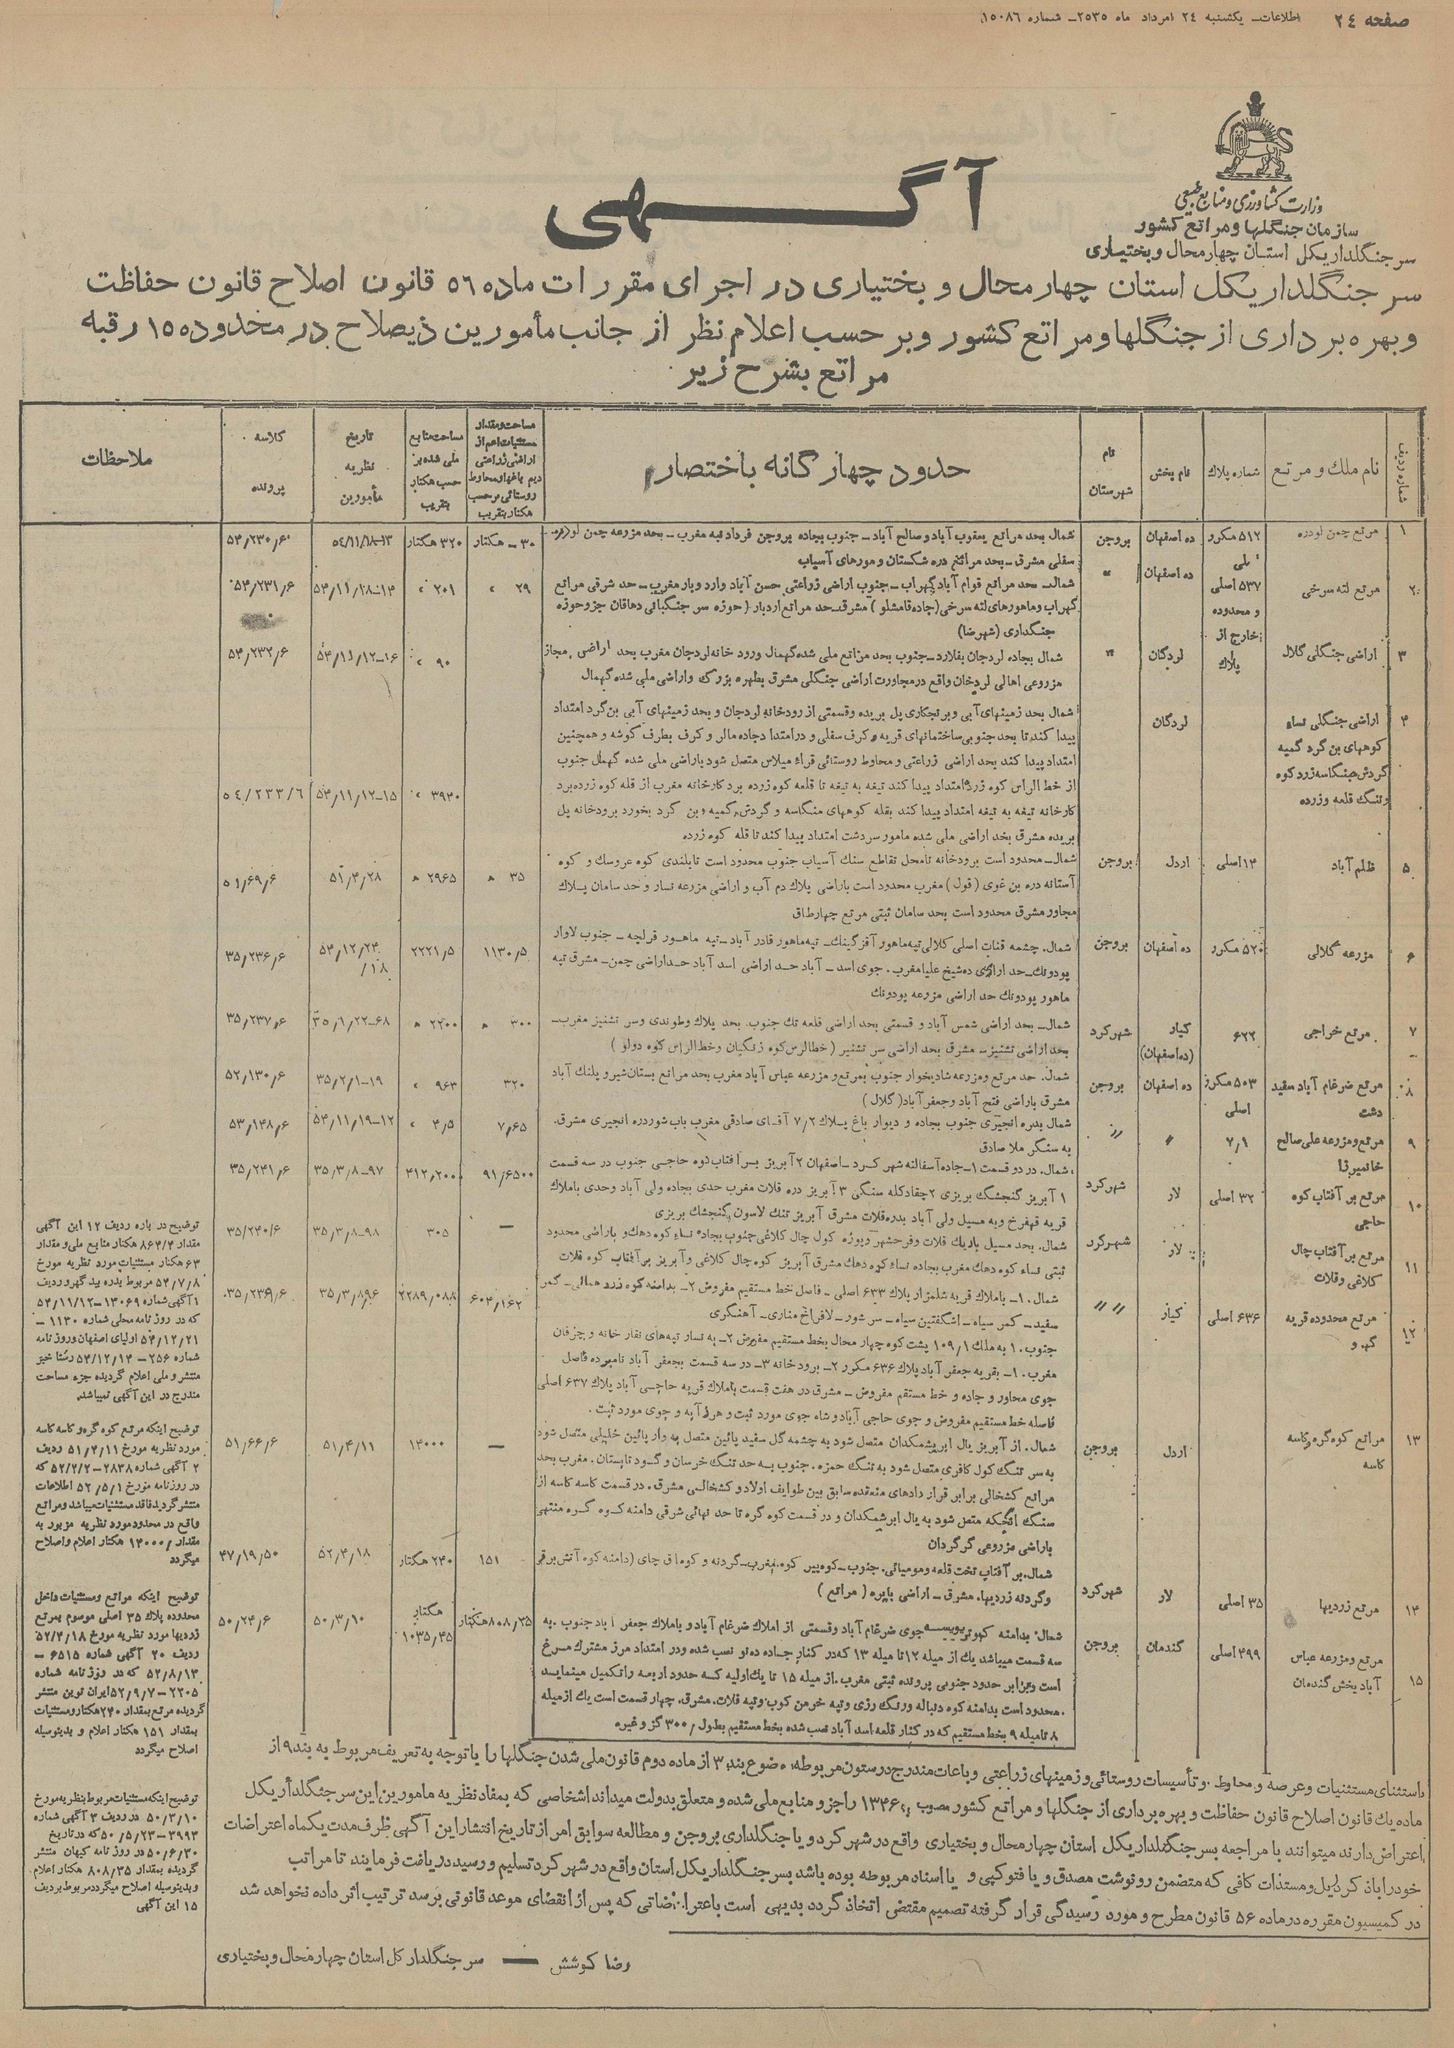 صفحه ۲۴
اطلاعات ـ یکشنبه ۲۴ امرداد ماه ۲۵۳۵ـ شماره ۱۵۰۸۶
وزارت کشاورزی و منابع طبیعی
سازمان جنگلها و مراتع کشور
سرجنگلداریکل استان چهارمحال و بختیاری
آگهی
سرجنگلداریکل استان چهارمحال و بختیاری در اجرای مقررات ماده ۵۶ قانون اصلاح قانون حفاظت
و بهره برداری از جنگلها و مراتع کشور و بر حسب اعلام نظر از جانب مأمورین ذیصلاح در محدوده ۱۵ رقبه
مراتع بشرح زیر
شماره ردیف
نام ملک و مرتع
شماره پلاک
نام بخش
نام شهرستان
حدود چهارگانه باختصار
مساحت و مقدار مستثنیات اعم از اراضی زراعتی دیم باغها و محاوط روستائی بر حسب هکتار بتقریب
مساحت منابع ملی شده بر حسب هکتار بتقریب
تاریخ نظریه مأمورین
کلاسه پرونده
ملاحظات
۱ مرتع چمن لودره ۵۱۲ مکرر ده اصفهان بروجن شمال بحد مراتع یعقوب آباد و صالح آباد ـ جنوب بجاده بروجن مغرب ـ بحد مزرعه چمن
سفلی مشرق ـ بحد مراتع دره شکستان و مورهای آسیاب ۳۰ ـ هکتار ۳۲۰ هکتار ۵۴/۱۱/۱۸ـ۱۳ ۵۴٫۲۳۰٫۶
۲ مرتع لته سرخی ۵۳۷ اصلی و محدوده خارج از پلاک ده اصفهان شمال ـ حد مراتع قوام آباد گهراب ـ جنوب اراضی زراعتی حسن آباد مغرب ـ حد شرقی مراتع
گهراب و ماهورهای لته سرخی (جاده قامشلو) مشرق ـ حد مراتع اردبار (حوزه سر جنگلبانی دهاقان جزو حوزه
جنگلداری (شهرضا) ۲۹ ۲۰۱ ۵۴/۱۱/۲۸ـ۱۴ ۵۴٫۲۳۱٫۶
۳ اراضی جنگلی گلال لردگان شمال بجاده لردجان بفلارد ـ جنوب بحد مراتع ملی شده گهمال ورود خانه لردجان مغرب بحد اراضی مجاز
مزروعی اهالی لردخان واقع در مجاورت اراضی جنگلی مشرق بطهره بزرگ و اراضی ملی شده گهمال ۹۰ ۵۴/۱۱/۱۲ـ۱۶ ۵۴٫۲۳۲٫۶
۴ اراضی جنگلی نساء کوههای بن گرد گمیه گردش جنگاسه زردکوه وتنگ قلعه وزرده لردگان شمال بحد زمینهای آبی و برنجکاری پل بریده و قسمتی از رودخانه لردجان و بحد زمینهای آبی بن گرد امتداد
پیدا کند تا بحد جنوبی ساختمانهای قریه و کرف سفلی و در امتداد جاده مالر و کرف بطرف گوشه و همچنین
امتداد پیدا کند بحد اراضی زراعتی و محاوط روستائی قراء میلاس متصل شود باراضی ملی شده گهمال جنوب
از خط الراس کوه زرد امتداد پیدا کند تیغه به تیغه تا قلعه کوه زرده برد کارخانه مغرب از قله کوه زرده برد
کارخانه تیغه به تیغه امتداد پیدا کند بقله کوههای منگاسه و گردش گمیه و بن گرد بخورد برودخانه پل
بریده مشرق بحد اراضی ملی شده مامور سردشت امتداد پیدا کند تا قله کوه زرده ۳۹۴۰ ۵۴/۱۱/۱۲ـ۱۵ ۵۴/۲۳۳/۶
۵ ظلم آباد ۱۴ اصلی اردل بروجن شمال ـ محدود است برودخانه تامحل تقاطع سنگ آسیاب جنوب محدود است تابلندی کوه عروسک و کوه
آستانه دره بن غوی (قول) مغرب محدود است باراضی پلاک دم آب و اراضی مزرعه نسار و حد سامان پلاک
مجاور مشرق محدود است بحد سامان ثبتی مرتع چهارطاق ۳۵ ۲۹۶۵ ۵۱/۴/۲۸ ۵۱٫۶۹٫۶
۶ مزرعه گلالی ۵۲۰ مکرر ده اصفهان بروجن شمال. چشمه قنات اصلی کلالی تپه ماهور آقزگینک ـ تپه ماهور قادر آباد ـ تپه ماهور قراچه ـ جنوب لاوار
پودونک ـ حد اراضی ده شیخ علیا مغرب. جوی اسد ـ آباد حد اراضی اسد آباد حد اراضی چمن ـ مشرق تپه
ماهور پودونک حد اراضی مزرعه پودونک ۱۱۳۰٫۵ ۲۲۲۱٫۵ ۵۴/۱۲/۲۴ /۱۸ ۳۵٫۲۳۶٫۶
۷ مرتع خراجی ۶۲۲ کیار (ده اصفهان) شهرکرد شمال ـ بحد اراضی شمس آباد و قسمتی بحد اراضی قلعه تک جنوب بحد پلاک وطوندی وسر تشنیز مغرب ـ
بحد اراضی تشنیز ـ مشرق بحد اراضی سر تشنیز (خطالرس کوه زنگیان و خط الراس کوه دولو) ۳۰۰ ۲۲۰۰ ۳۵/۱/۲۲ـ۶۸ ۳۵٫۲۳۷٫۶
۸ مرتع ضرغام آباد سفید دشت ۵۰۳ مکرر اصلی ده اصفهان بروجن شمال. حد مرتع و مزرعه شادبخوار جنوب بمرتع و مزرعه عباس آباد مغرب بحد مراتع بستان شیرو پلنگ آباد
مشرق باراضی فتح آباد و جعفر آباد (گلال) ۳۲۰ ۹۶۳ ۳۵/۲/۱ـ۱۹ ۵۲٫۱۳۰٫۶
۹ مرتع و مزرعه علی صالح خانمیرزا ۲٫۱ شمال بدره انجیری جنوب بجاده و دیوار باغ پلاک ۷٫۲ آقای صادقی مغرب باب شوردره انجیری مشرق.
به سنگر ملا صادق ۷٫۶۵ ۴٫۵ ۵۴/۱۱/۱۹ـ۱۲ ۵۳٫۱۴۸٫۶
۱۰ مرتع بر آفتاب کوه حاجی ۳۲ اصلی لار شهرکرد شمال. در دو قسمت ۱ـ جاده آسفالته شهر کرد ـ اصفهان ۲ آبریز بر آفتاب کوه حاجی جنوب در سه قسمت
۱ آبریز گنجشگ بریزی ۲ چقاد کله سنگی ۳ آبریز دره قلات مغرب حدی بجاده ولی آباد وحدی باملاک
قریه قهفرخ و به مسیل ولی آباد بدره قلات مشرق آبریز تنگ لاسون گنجشگ بریزی ۹۱٫۶۵۰۰ ۴۱۲٫۲۰۰۰ ۳۵/۳/۸ـ۹۷ ۳۵٫۲۴۱٫۶
۱۱ مرتع بر آفتاب چال کلاغی و قلات لار شهرکرد شمال. بحد مسیل باریک قلات و فرحشهر کول چال کلاغی جنوب بجاده نساء کوه دهک و باراضی محدود
ثبتی نساء کوه دهک مغرب بجاده نساء کوه دهک مشرق آبریز کوه چال کلاغی و آبریز بر آفتاب کوه قلات — ۳۰۵ ۳۵/۳/۸ـ۹۸ ۳۵/۲۴۰/۶
۱۲ مرتع محدوده قریه ۶۳۶ اصلی کیار شمال. ۱ـ باملاک قریه شلمزار پلاک ۶۳۳ اصلی ـ فاصل خط مستقیم مفروض ۲ـ بدامنه کوه زرد همائی ـ کمر
سفید ـ کمر سیاه ـ اشگفتین سیاه ـ سر شور ـ لافراخ مناری ـ آهنگری
جنوب. ۱ به ملک ۱۰۹٫۱ پشت کوه چهار محال بخط مستقیم مفروض ۲ـ به نسار تپه های نقار خانه و چزفان
مغرب. ۱ـ بقریه جعفر آباد پلاک ۶۳۶ مکرر ۲ـ برودخانه ۳ـ در سه قسمت بجعفر آباد نامبرده فاصل
جوی مجاور و جاده و خط مستقیم مفروض ـ مشرق در هفت قسمت باملاک قریه حاجی آباد پلاک ۶۳۷ اصلی
فاصله خط مستقیم مفروض و جوی حاجی آباد و شاه جوی مورد ثبت و هرز آبه و جوی مورد ثبت. ۶۰۴٫۱۶۲ ۲۲۸۹٫۰۸۸ ۳۵/۳/۸ ۳۵٫۲۳۹٫۶
۱۳ مراتع کوه گره و کاسه کاسه اردل بروجن شمال. از آبریز یال ابریشمکدان متصل شود به چشمه گل سفید پائین متصل به وار پائین خلیلی متصل شود
به سر تنگ کول کافری متصل شود به تنگ حمزه. جنوب به حد تنگ خرسان و گود تابستان. مغرب بحد
مراتع کشخالی برابر قرار دادهای منعقده سابق بین طوایف اولاد و کشخالی مشرق. در قسمت کاسه کاسه از
سنگ انگنجکه متصل شود به یال ابرشمکدان و در قسمت کوه گره تا حد نهائی شرقی دامنه کوه گره منتهی
باراضی مزروعی گرگردان — ۱۴۰۰۰ ۵۱/۴/۱۱ ۵۱٫۶۶٫۶
۱۴ مرتع زردیها ۳۵ اصلی لار شهرکرد شمال. بر آفتاب تخت قلعه و مومیائی. جنوب ـ کوه پیر کوه. مغرب ـ گردنه و کوه اق چای (دامنه کوه آتش برقی
و گردنه زردیها. مشرق ـ اراضی بایره (مراتع) ۱۵۱ ۲۴۰ هکتار ۵۲/۴/۱۸ ۴۷٫۱۹٫۵۰
۱۵ مرتع و مزرعه عباس آباد بخش گندمان ۴۹۹ اصلی گندمان بروجن شمال بدامنه جوی ضرغام آباد و قسمتی از املاک ضرغام آباد و باملاک جعفر آباد جنوب. به
سه قسمت میباشد یک از میله ۱۲ تا میله ۱۳ که در کنار جاده ده نو نصب شده و در امتداد مرز مشترک مرغ
است و برابر حدود جنوبی پرونده ثبتی مغرب. از میله ۱۵ تا یک اولیه که حدود اربعه را تکمیل مینماید
محدود است بدامنه کوه دنباله ورنگ رزی و تپه خرمن کوب و تپه قلات. مشرق. چهار قسمت است یک از میله
۸ تا میله ۹ بخط مستقیم که در کنار قلعه اسد آباد نصب شده بخط مستقیم بطول ۳۰۰٫ گز و غیره ۸۰۸٫۲۵ هکتار ۱۰۳۵٫۴۵ هکتار ۵۰٫۳٫۱۰ ۵۰٫۲۴٫۶
توضیح در باره ردیف ۱۲ این آگهی
مقدار ۸۶۴٫۴ هکتار منابع ملی و مقدار
۶۳ هکتار مستثنیات مورد نظریه مورخ
۵۴٫۷٫۸ مربوط بدره بید گهر و ردیف
۱ آگهی شماره ۱۳۰۶۹ـ۵۴/۱۱/۱۲
که در روز نامه محلی شماره ۱۱۳۰ ـ
۵۴/۱۲/۲۱ اولیای اصفهان و روز نامه
شماره ۲۵۶ـ ۵۴/۱۲/۱۴ رستاخیز
منتشر و ملی اعلام گردیده جزء مساحت
مندرج در این آگهی نمیباشد.
توضیح اینکه مرتع کوه گره و کاسه کاسه
مورد نظریه مورخ ۵۱/۴/۱۱ ردیف
۲ آگهی شماره ۲۸۳۸ـ۵۲/۲/۲ که
در روزنامه مورخ ۵۲/۵/۱ اطلاعات
منتشر گردید فاقد مستثنیات میباشد و مراتع
واقع در محدود مورد نظریه مزبور به
مقدار ۱۴۰۰۰٫ هکتار اعلام و اصلاح
میگردد
توضیح اینکه مراتع و مستثنیات داخل
محدوده پلاک ۳۵ اصلی موسوم بمرتع
زردیها مورد نظریه مورخ ۵۲/۴/۱۸
ردیف ۲۰ آگهی شماره ۶۵۱۵ ـ
۵۲/۸/۱۳ که در روز نامه شماره
۲۲۰۵ ـ ۵۲/۹/۷ ایران نوین منتشر
گردیده مرتع بمقدار ۲۴۰ هکتار و مستثنیات
بمقدار ۱۵۱ هکتار اعلام و بدینوسیله
اصلاح میگردد
توضیح اینکه مستثنیات مربوط بنظریه مورخ
۵۰/۳/۱۰ در ردیف ۳ آگهی شماره
۳۹۹۳ـ۵۰/۵/۲۳ که در تاریخ
۵۰/۶/۳۰ در روز نامه کیهان منتشر
گردیده بمقدار ۸۰۸/۳۵ هکتار اعلام
و بدینوسیله اصلاح میگردد مربوط بردیف
۱۵ این آگهی
باستثنای مستثنیات و عرصه و محاوط. و تأسیسات روستائی و زمینهای زراعتی و باغات مندرج در ستون مربوطه، موضوع بند ۳ از ماده دوم قانون ملی شدن جنگلها را با توجه به تعریف مربوط به بند ۹ از
ماده یک قانون اصلاح قانون حفاظت و بهره برداری از جنگلها و مراتع کشور مصوب ۱۳۴۶ را جزو منابع ملی شده و متعلق بدولت میداند اشخاصی که بمفاد نظریه مامورین این سرجنگلداریکل
اعتراض دارند میتوانند با مراجعه بسرجنگلداریکل استان چهارمحال و بختیاری واقع در شهر کرد و یا جنگلداری بروجن و مطالعه سوابق امر از تاریخ انتشار این آگهی ظرف مدت یکماه اعتراضات
خود را باذکر دلایل و مستندات کافی که متضمن رونوشت مصدق و یا فتوکپی و یا اسناد مربوطه بوده باشد بسرجنگلداریکل استان واقع در شهر کرد تسلیم و رسید دریافت فرمایند تا مراتب
در کمیسیون مقرره در ماده ۵۶ قانون مطرح و مورد رسیدگی قرار گرفته تصمیم مقتضی اتخاذ گردد بدیهی است باعتراضاتی که پس از انقضای موعد قانونی برسد ترتیب اثر داده نخواهد شد
رضا کوشش — سرجنگلدار کل استان چهارمحال و بختیاری